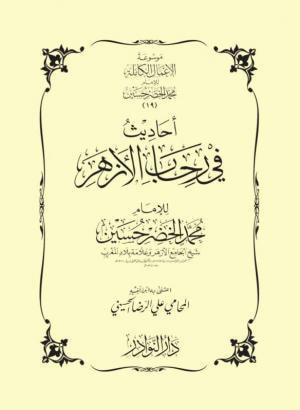 موسوعة
الأعمال الكاملة
للإمام
محمد الخضر حسين
(١٩)
أحاديث
في رحاب الأزهر
للإمام
محمد الخضر حسين
شيخ الجامع الأزهر وعلامة بلاد المغرب
اعتنى به ابن أخيه
المحامي علي الرضا الحسيني
دار النوادر